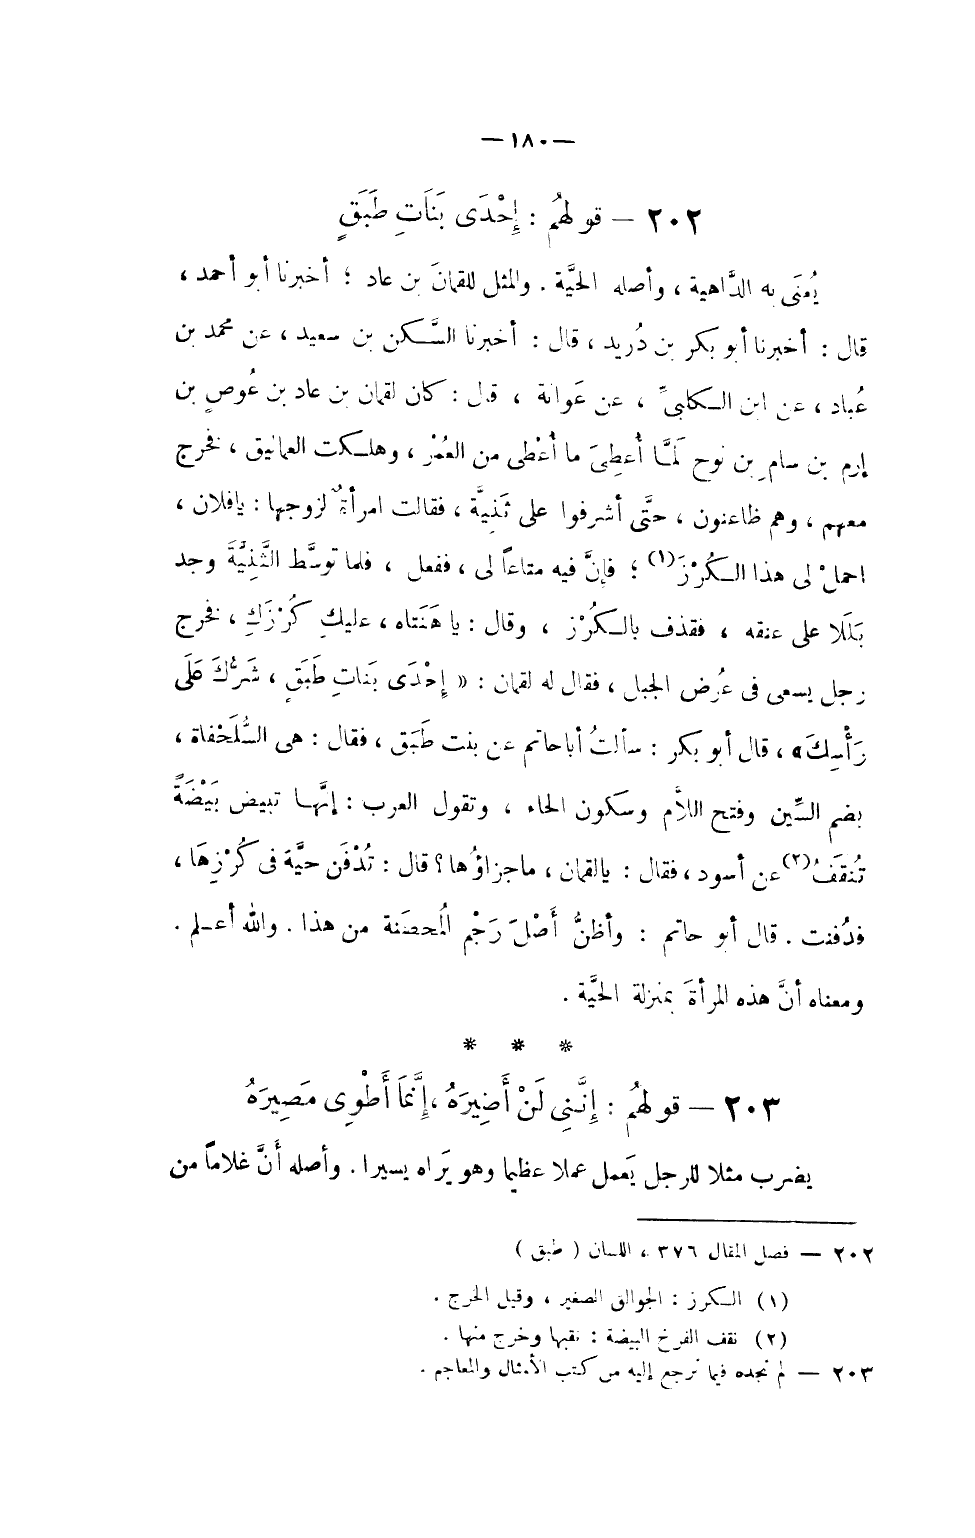 — ١٨٠ —
٢٠٢ — قولهُم : إِحْدَى بَنَاتِ طَبَقٍ
يُعنَى به الدَّاهية ، وأصله الحيَّة . والمثل للقمانَ بن عاد ؛ أخبرنا أبو أحمد ،
قال : أخبرنا أبو بكر بن دُريد ، قال : أخبرنا السَّكن بن سعيد ، عن محمد بن
عُباد ، عن ابن الكلبيِّ ، عن عَوانة ، قال : كان لقمان بن عاد بن عُوصٍ بن
إرم بن سامِ بن نوح لمَّا أُعطِىَ ما أُعْطى من العُمْر ، وهلكت العماليق ، فخرج
معهم ، وهم ظاعنون ، حتَّى أشرفوا على ثَنِيَّة ، فقالت امرأةٌ لزوجها : يافلان ،
احملْ لى هذا الكُرْزَ(١) ؛ فإنَّ فيه متاعاً لى ، ففعل ، فلما توسَّط الثَّنِيَّةَ وجد
بَلَلا على عنقه ، فقذف بالكُرْز ، وقال : يا هَنَتاه ، عليكِ كُرْزَكِ ، فخرج
رجل يسعى فى عُرض الجبل ، فقال له لقمان : « إِحْدَى بَناتِ طَبَقٍ ، شَرُّكَ عَلَى
رَأْسِكَ » ، قال أبو بكر : سألتُ أباحاتم عن بنت طَبَق ، فقال : هى السُّلَحْفاة ،
بضم السِّين وفتح اللاَّم وسكون الحاء ، وتقول العرب : إنَّها تبيض بَيْضَةً
تُنقَفُ(٢) عن أسود ، فقال : يالقمان ، ماجزاؤُها ؟ قال : تُدْفَن حيَّة فى كُرْزِهَا ،
فدُفنت . قال أبو حاتم : وأظنُّ أَصْلَ رَجْم المُحصَنة من هذا . والله أعلم .
ومعناه أنَّ هذه المرأةَ بمنزلة الحيَّة .
* * *
٢٠٣ — قولهُم : إِنَّنِي لَنْ أَضِيرَهُ ، إِنَّمَا أَطْوِى مَصِيرَهُ
يضرب مثلا للرجل يَعمل عملا عظيما وهو يَراه يسيرا . وأصله أنَّ غلاماً من
٢٠٢ — فصل المقال ٣٧٦ ، اللسان ( طبق )
(١) الكرز : الجوالق الصغير ، وقيل الخرج .
(٢) نقف الفرخ البيضة : نقبها وخرج منها .
٢٠٣ — لم نجده فيما نرجع إليه من كتب الأمثال والمعاجم .